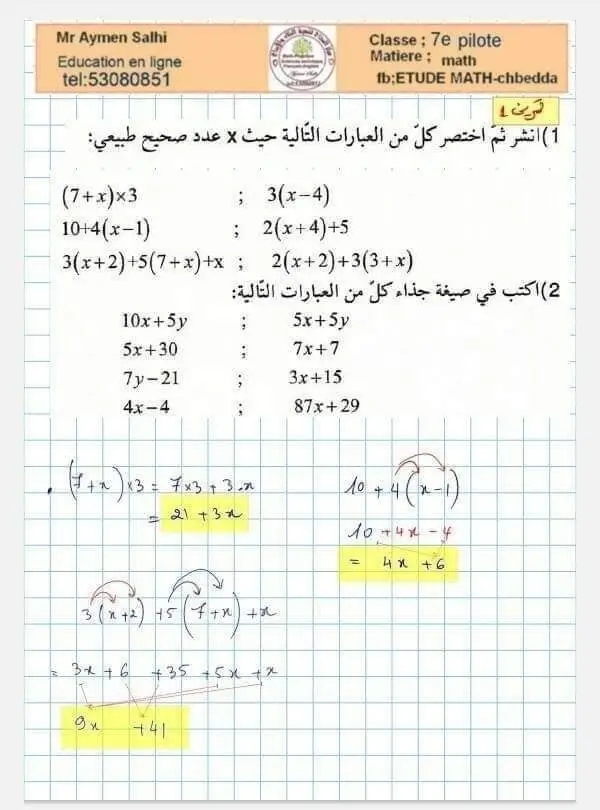 Mr Aymen Salhi
Education en ligne
tel:53080851
Classe ; 7e pilote
Matiere ; math
fb;ETUDE MATH-chbedda
تمرين 1
1)انشر ثمّ اختصر كلّ من العبارات التّالية حيث x عدد صحيح طبيعي:
(7+x)×3 ; 3(x−4)
10+4(x−1) ; 2(x+4)+5
3(x+2)+5(7+x)+x ; 2(x+2)+3(3+x)
2)اكتب في صيغة جذاء كلّ من العبارات التّالية:
10x+5y ; 5x+5y
5x+30 ; 7x+7
7y−21 ; 3x+15
4x−4 ; 87x+29
(7+x)×3 = 7×3 + 3.x
= 21 + 3x
10 + 4(x−1)
10 + 4x − 4
= 4x + 6
3(x+2) + 5(7+x) + x
= 3x + 6 + 35 + 5x + x
9x + 41